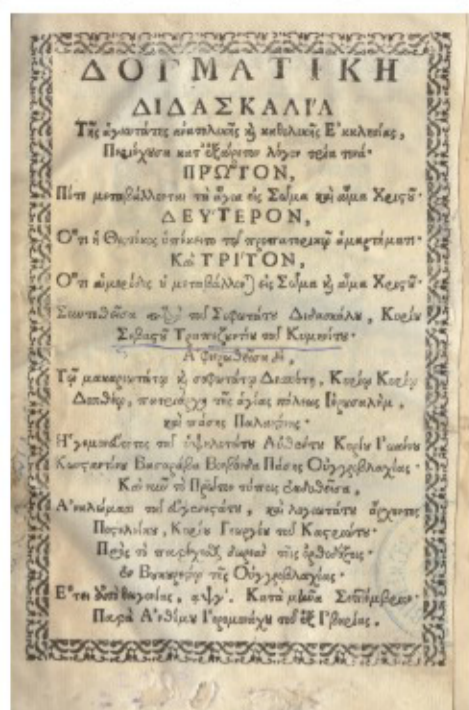 ΔΟΓΜΑΤΙΚΗ
ΔΙΔΑΣΚΑΛΙΑ
Τῆς ἁγιωτάτης ἀνατολικῆς ϗ καθολικῆς Ἐκκλησίας,
Περιέχουσα κατ' ἐξαίρετον λόγον τρία τινά·
ΠΡΩΤΟΝ,
Πότε μεταβάλλονται τὰ ἅγια εἰς Σῶμα καὶ αἷμα Χριστοῦ·
ΔΕΥΤΕΡΟΝ,
Ὅτι ἡ Θεοτόκος ὑπέκειτο τῷ προπατορικῷ ἁμαρτήματι·
Καὶ ΤΡΙΤΟΝ,
Ὅτι αἱ μερίδες οὐ μεταβάλλονται εἰς Σῶμα ϗ αἷμα Χριστοῦ·
Συντεθεῖσα παρὰ τοῦ Σοφωτάτου Διδασκάλου, Κυρίου
Σεβαστοῦ Τραπεζουντίου τοῦ Κυμινήτου·
Ἀφιερωθεῖσα δὲ,
Τῷ μακαριωτάτῳ ϗ σοφωτάτῳ Δεσπότῃ, Κυρίῳ Κυρίῳ
Δοσιθέῳ, πατριάρχῃ τῆς ἁγίας πόλεως Ἱερουσαλὴμ,
καὶ πάσης Παλαιστίνης·
Ἡγεμονεύοντος τοῦ ὑψηλοτάτου Αὐθέντου Κυρίου Ἰωάννου
Κωνσταντίνου Βασαράβα Βοεβόνδα Πάσης Οὐγγροβλαχίας·
Καὶ νῦν τὸ Πρῶτον τύποις ἐκδοθεῖσα,
Ἀναλώμασι τοῦ εὐγενεστάτου, καὶ λογιωτάτου ἄρχοντος
Ποστελνίκου, Κυρίου Γεωργίου τοῦ Καστριώτου·
Πρὸς τὸ παρέχεσθαι δωρεὰν τοῖς ὀρθοδόξοις·
ἐν Βουκουρεστίῳ τῆς Οὐγγροβλαχίας·
Ἔτει θεογονίας, αψγʹ. Κατὰ μῆνα Σεπτέμβριον·
Παρὰ Ἀνθίμου Ἱερομονάχου τοῦ ἐξ Ἰβηρίας.